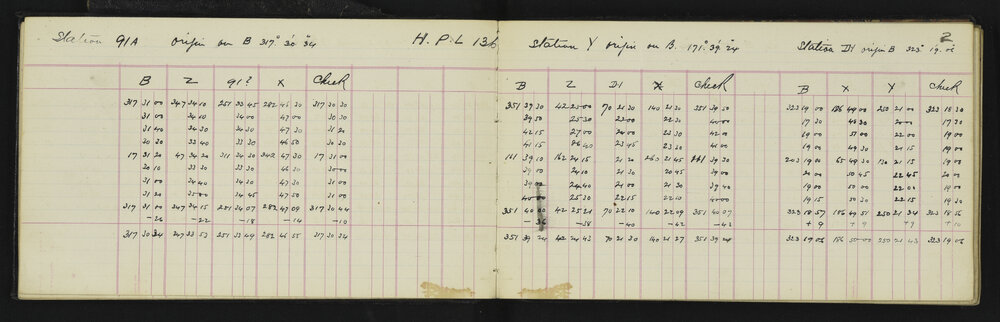 Station 91A origin on B 317° 30' 34" H. P. L 136
B Z 91? X Check
317 31 00 247 34 10 251 33 45 282 46 30 317 30 30
31 00 34 10 34 00 47 00 30 30
31 40 34 30 34 30 47 30 31 20
30 30 33 40 33 30 46 50 30 30
17 31 20 47 34 20 311 34 30 342 47 30 17 31 00
30 10 33 30 33 30 46 30 30 00
31 00 34 40 34 30 47 30 31 00
31 20 35 00 34 45 47 50 31 00
317 31 00 247 34 15 251 34 07 282 47 09 317 30 44
-26 -22 -18 -14 -10
317 30 34 247 33 53 251 33 49 282 46 55 317 30 34
2
Station Y origin on B. 171° 39' 24" Station D1 origin B 323° 19' 06"
B Z D1 X Check B X Y Check
351 39 30 42 25 00 70 21 30 140 21 30 351 39 50 323 19 00 186 49 00 250 21 00 323 18 30
39 50 25 30 22 00 22 30 40 00 17 30 48 30 20 00 17 30
42 15 27 00 24 00 23 30 42 00 19 00 51 00 22 00 19 00
41 15 26 40 23 45 23 30 41 00 19 00 49 30 21 15 19 00
161 39 10 162 24 15 21 20 260 21 45 161 39 30 203 19 00 65 49 30 130 21 15 19 00
39 00 24 10 21 30 20 45 39 00 20 00 50 45 22 45 20 00
39 00 24 40 21 00 21 30 39 40 19 00 50 00 22 00 19 00
40 00 25 30 22 15 22 10 40 00 19 15 50 30 22 15 19 30
351 40 00 42 25 21 70 22 10 140 22 09 351 40 07 323 18 57 186 49 51 250 21 34 323 18 56
-36 -38 -40 -42 -43 +9 +9 +9 +10
351 39 24 42 24 43 70 21 30 140 21 27 351 39 24 323 19 06 186 50 00 250 21 43 323 19 06